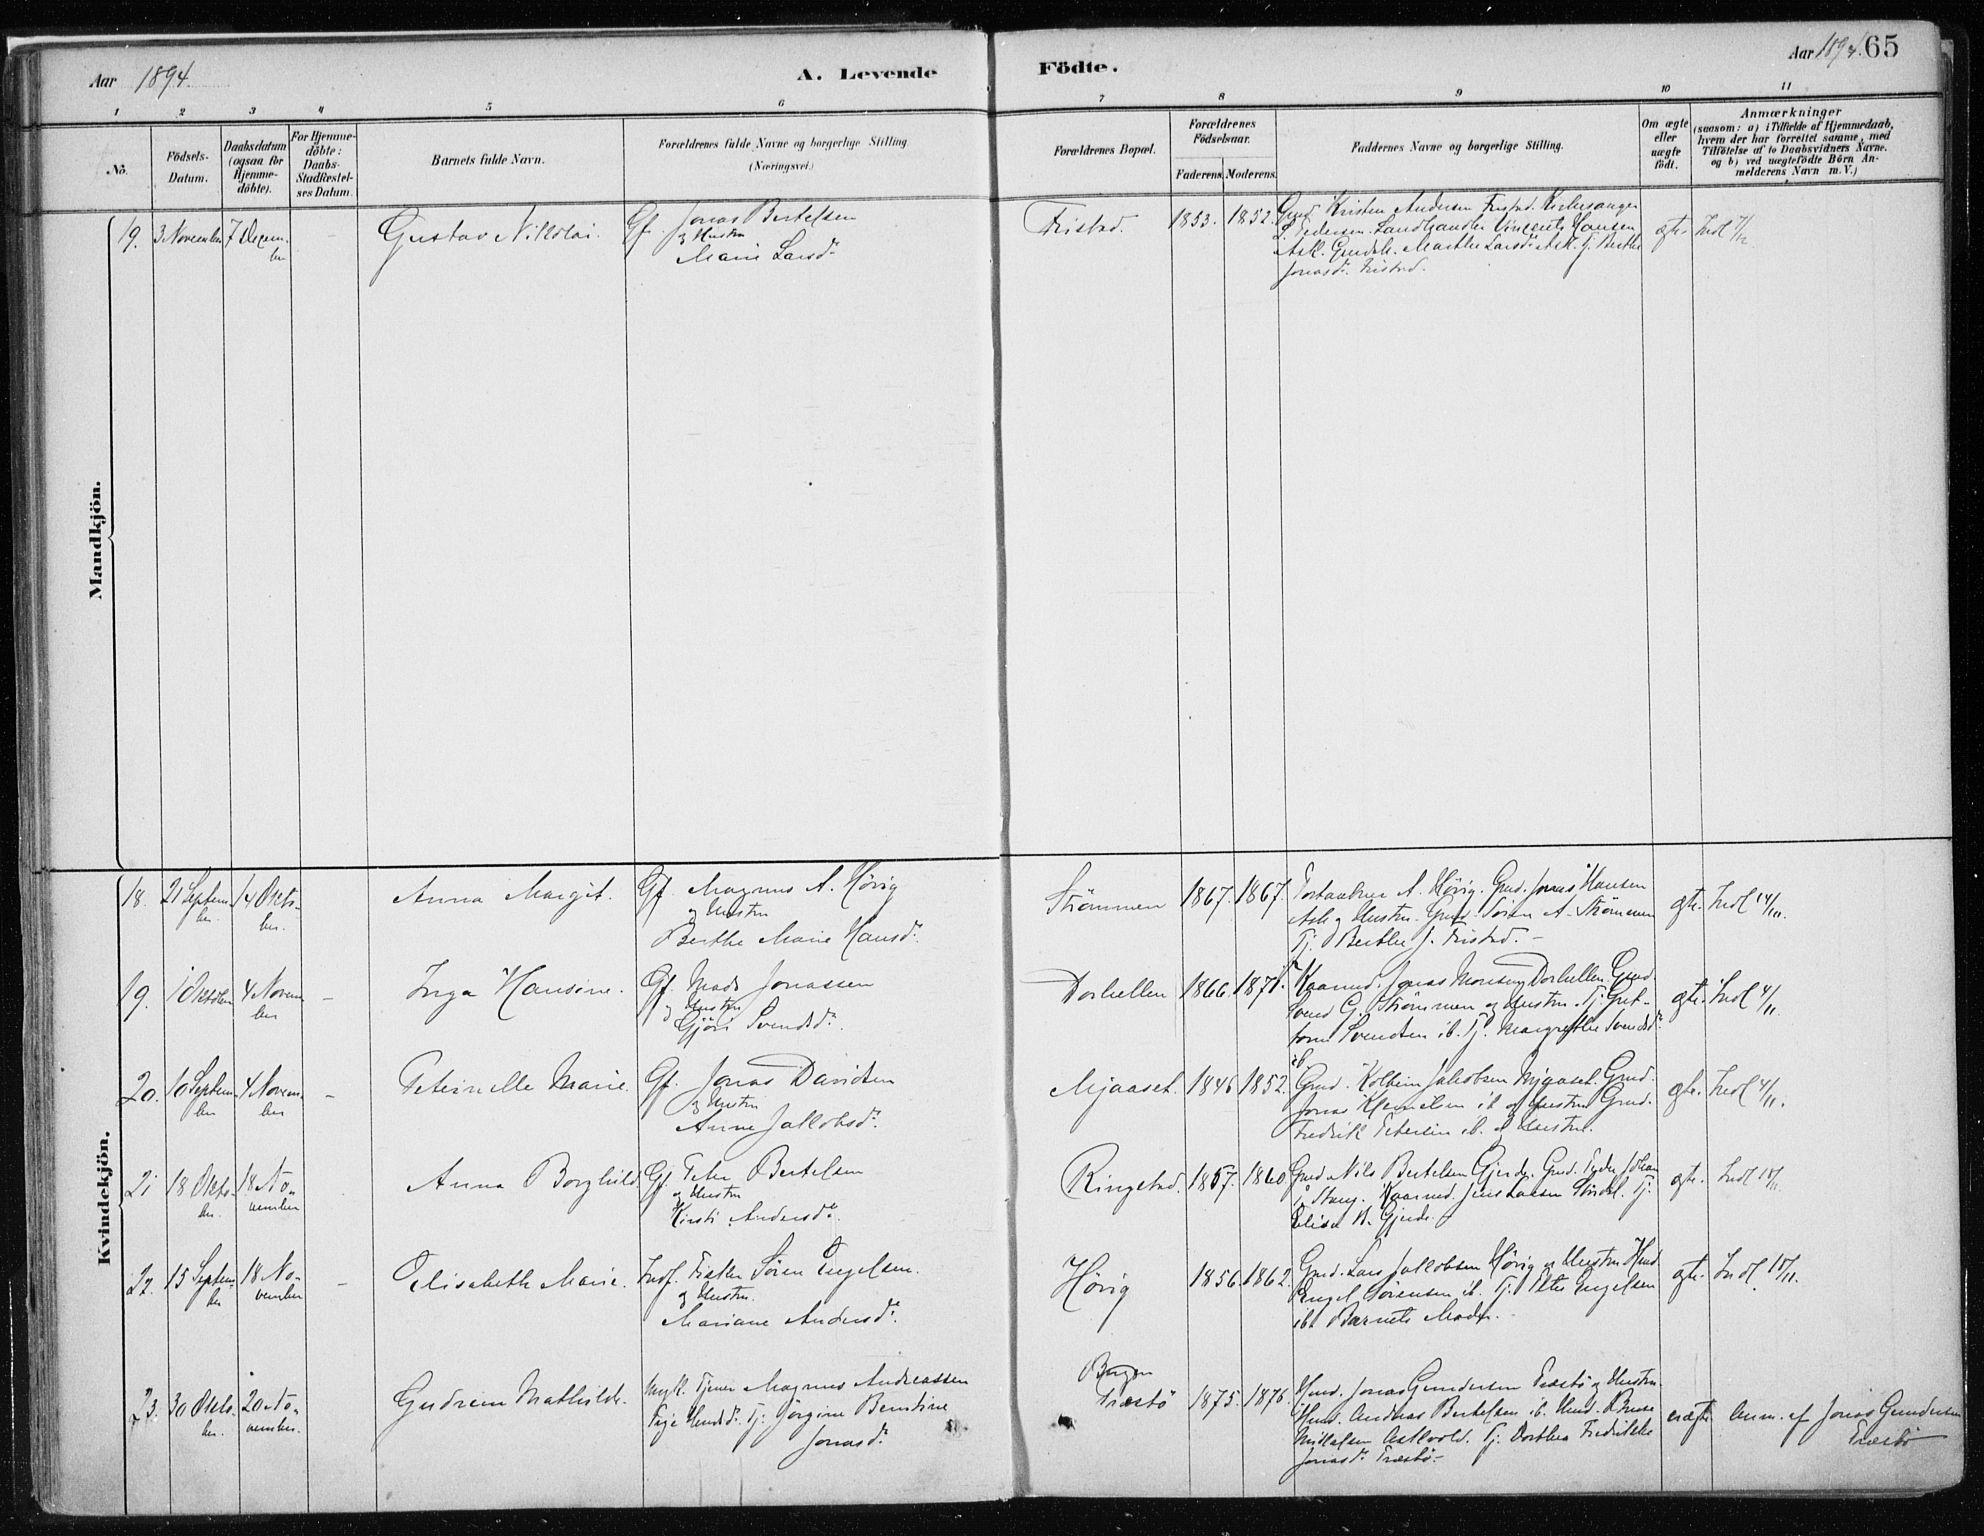 Aar 1894.
A. Levende
Födte.
Aar 1894. 65
1 2 3 4 5 6 7 8 9 10 11
No.
Födsels-
Datum.
Daabsdatum
(ogsaa for
Hjemme-
döbte).
For Hjemme-
döbte:
Daabs-
Stadfæstel-
ses Datum.
Barnets fulde Navn.
Forældrenes fulde Navne og borgerlige Stilling
(Næringsvei.)
Forældrenes Bopæl.
Forældrenes
Födselsaar.
Faderens. Moderens.
Faddernes Navne og borgerlige Stilling.
Om ægte
eller
uægte
født.
Anmærkninger
(saasom: a) i Tilfælde af Hjemmedaab,
hvem der har forrettet samme, med
Tilføielse af to Daabsvidners Navne.
og b) ved uægtefödte Börn An-
melderens Navn m. V.)
Mandkjön.
19. 3 November 7 Decem-
ber
Gustav Nikolai.
Gf. Jonas Bertelsen
og Hustru
Marie Larsdr.
Fristad. 1853. 1852.
Gmd. Kristen Andersen Fristad. Kirkesanger
Pedersen. Landhandler Vincents Hansen
Ask. Marthe Larsdr Ask. Tj. Berthe
Jonasdr. Fristad.
ægte Indl 7/12
Kvindekjön.
18. 21 Septem-
ber
14 Okto-
ber.
Anna Margit.
Gf. Magnus A. Hövig
og Hustru
Berthe Marie Hansdr.
Strömmen 1867. 1867.
A. Hövig. Gmd. Jonas Hansen
Ask og Hustru. Gmd. Sören A. Strömmen
Tj. Berthe J. Fristad.
gte. Indl 14/10.
19. 1 Oktober 4 Novem-
ber –
Inga Hansine.
Gf. Mads Jonassen
og Hustru
Gjöri Svendsdr.
Dorhellen 1866. 1871.
Kaarmd. Jonas Monsen Dorhellen. Gmd.
Svend G. Strömmen og Hustru. Tj. Gut-
torm Svendsen ib. Tj. Margrethe Svendsdr.
ib.
gte. Indl 4/11.
20. 10 Septem-
ber
4 Novem-
ber –
Peternelle Marie.
Gf. Jonas Davidsen
og Hustru
Anne Jakobsdr.
Mjaaset. 1846 1852.
Gmd. Kolbein Jakobsen Mjaaset. Gmd.
Jonas ib og Hustru. Gmd.
Fredrik Petersen ib. og Hustru.
gte. Indl 4/11.
21 18 Okto-
ber.
18 No-
vember
Anna Borghild
Gf. Peter Bertelsen
og Hustru
Kirsti Andersdr.
Ringstad. 1857. 1860
Gmd Nils Bertelsen Gjerde. Gmd. Peder Johan
Kaarmd. Jens Larsen Tj.
Elisa N. Gjerde.
gte. Indl 18/11
22. 15 Septem-
ber
18 No-
vember –
Elisabeth Marie.
Indf. Fisker Sören Engelsen.
og Hustru.
Mariane Andersdr.
Hövig 1856. 1862.
Gmd. Lars Jakobsen Hövig og Hustru. Hmd.
Engel Sörensen ib. Tj. Peter Engelsen
ib. Barnets Moder.
gte. Indl. 18/11.
23. 30 Okto-
ber.
20 No-
vember.
Gudrun Mathilde.
Ungk. Tjener Magnus Andreassen
Pige Tj. Jörgine Berntine
Jonasdr.
Bergen
Træstö 1875. 1876.
Hmd. Jonas Gundersen Træstö og Hustru.
Hmd. Andreas Bertelsen ib. Hmd.
Tj. Dorthea Fredrikke
Jonasdr. Træstö.
uægte Anm. af Jonas Gundersen
Træstö